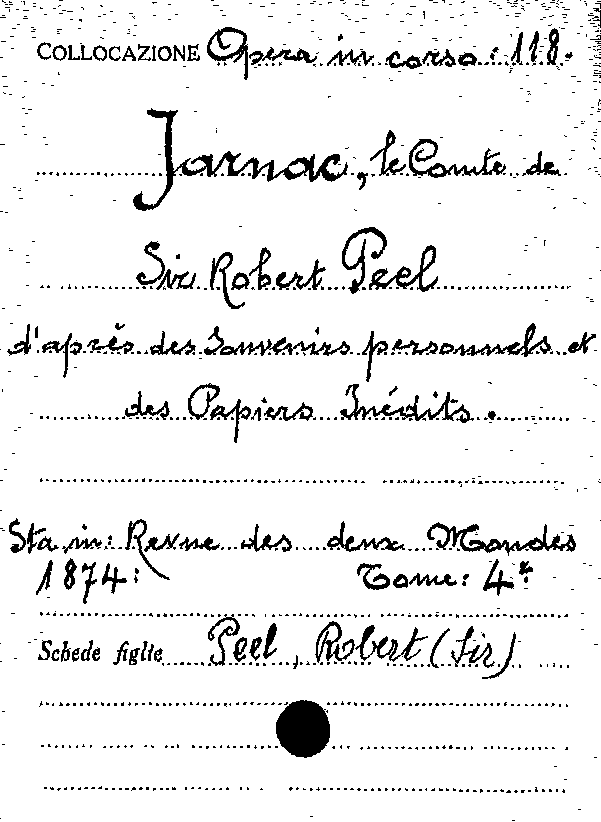 COLLOCAZIONE Opera in corso: 118.
Jarnac, le Comte de
Sir Robert Peel
d'après des Souvenirs personnels et
des Papiers Inédits.
Sta in: Revue des deux Mondes
1874: Tome: 4º
Schede figlie Peel, Robert (Sir)